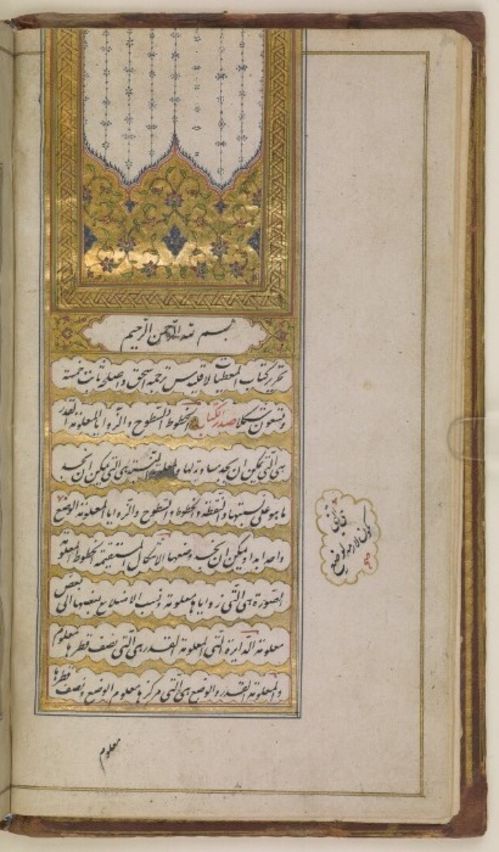 بسم الله الرحمن الرحیم
تحریر کتاب المعطیات لاقلیدس ترجمه اسحق واصلحه ثابت خمسة
وتسعون شکلا صدر الکتاب الخطوط والسطوح والزوایا المعلومة القدر
هی التی یمکن ان یجد مساویة لها و المعلومة النسبة هی التی یمکن ان یجد
ما هو علی نسبتها والنقطة والخطوط والسطوح والزوایا المعلومة الوضع
واحدا بدا ویمکن ان یجد وضعها الاشکال المستقیمة الخطوط المعلومة
الصورة هی التی زوایاها معلومة ونسب الاضلاع بعضها الی بعض
معلومة الدایرة التی المعلومة القدر هی التی نصف قطرها معلوم
والمعلومة القدر والوضع هی التی مرکزها معلوم الوضع ونصف قطرها
معلوم